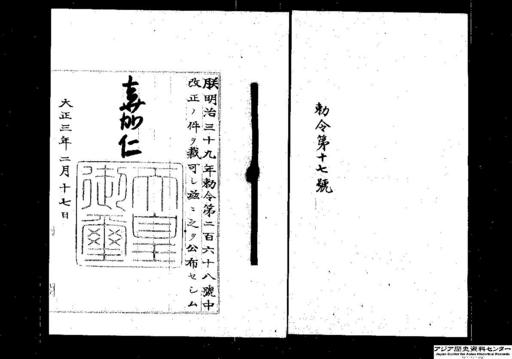 勅令第十七號
朕明治三十九年勅令第二百六十八號中
改正ノ件ヲ裁可シ茲ニ之ヲ公布セシム
嘉仁
天皇
御璽
大正三年二月十七日
アジア歴史資料センター
Japan Center for Asian Historical Records